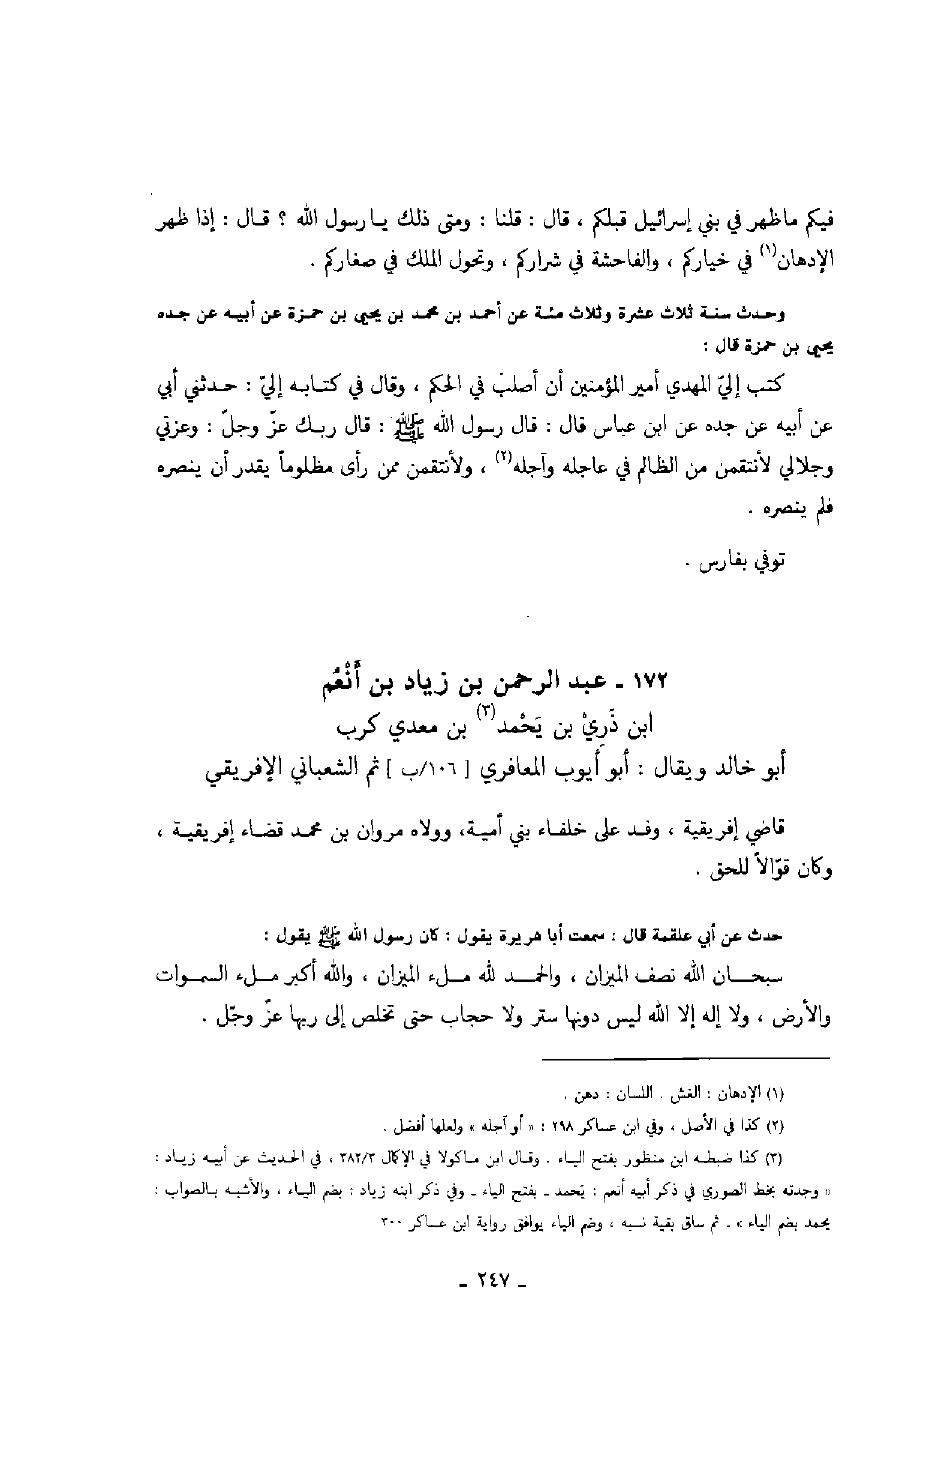 فيكم ماظهر في بني إسرائيل قبلكم ، قال : قلنا : ومتى ذلك يارسول الله ؟ قال : إذا ظهر
الإدهان(١) في خياركم ، والفاحشة في شراركم ، وتحول الملك في صغاركم .
وحدث سنة ثلاث عشرة وثلاث مئة عن أحمد بن محمد بن يحيى بن حمزة عن أبيه عن جده
يحيى بن حمزة قال :
كتب إليّ المهدي أمير المؤمنين أن أصلبَ في الحكم ، وقال في كتابه إليّ : حدثني أبي
عن أبيه عن جده عن ابن عباس قال : قال رسول الله ﷺ : قال ربك عزّ وجلّ : وعزتي
وجلالي لأنتقمن من الظالم في عاجله وآجله(٢) ، ولأنتقمن ممن رأى مظلوماً يقدر أن ينصره
فلم ينصره .
توفي بفارس .
١٧٢ ـ عبد الرحمن بن زياد بن أَنْعُم
ابن ذَرِيْ بن يَحْمد(٣) بن معدي كرب
أبو خالد ويقال : أبو أيوب المعافري [ ١٠٦/ب ] ثم الشعباني الإفريقي
قاضي إفريقية ، وفد على خلفاء بني أمية، وولاه مروان بن محمد قضاء إفريقية ،
وكان قوّالاً للحق .
حدث عن أبي علقمة قال : سمعت أبا هريرة يقول : كان رسول الله ﷺ يقول :
سبحان الله نصف الميزان ، والحمد لله ملء الميزان ، والله أكبر ملء السموات
والأرض ، ولا إله إلا الله ليس دونها ستر ولا حجاب حتى تخلص إلى ربها عزّ وجلّ .
(١) الإدهان : الغش . اللسان : دهن .
(٢) كذا في الأصل ، وفي ابن عساكر ٢٩٨ : « أو آجله » ولعلها أفضل .
(٣) كذا ضبطه ابن منظور بفتح الياء . وقال ابن ماكولا في الإكمال ٣٨٢/٣ ، في الحديث عن أبيه زياد :
« وجدته بخط الصوري في ذكر أبيه أنعم : يَحمد ـ بفتح الياء ـ وفي ذكر ابنه زياد : بضم الياء ، والأشبه بالصواب :
يحمد بضم الياء » ـ ثم ساق بقية نسبه ، وضم الياء يوافق رواية ابن عساكر ٣٠٠
ـ ٢٤٧ ـ